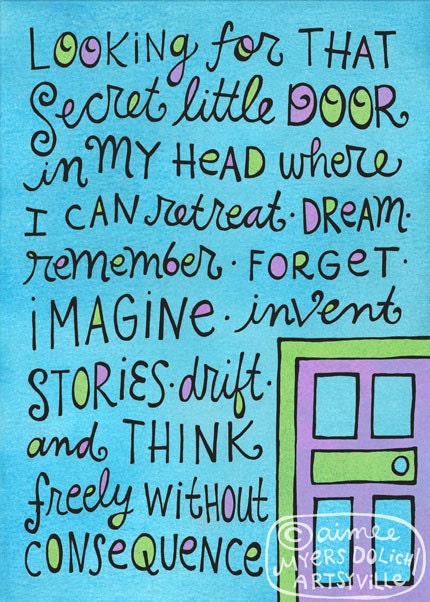 LOOKING for THAT
Secret little DOOR
in MY HEAD where
I CAN retreat · DREAM ·
remember · FORGET ·
iMAGINE · invent
STORIES · drift ·
and THINK
freely WiTHOUT
CONSEQUENCE
© aimee
MYERS DOLICH
ARTSYViLLE